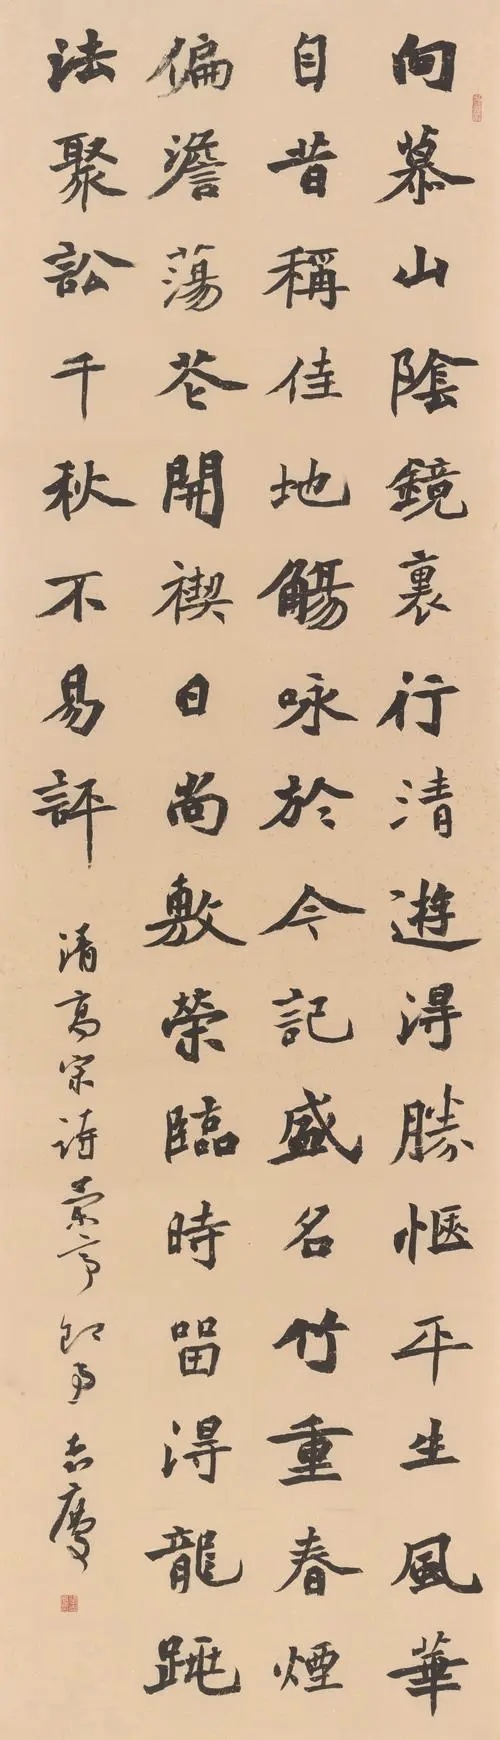 向慕山陰鏡裏行清遊得勝愜平生風華
自昔稱佳地觴咏於今記盛名竹重春煙
偏澹蕩花開禊日尚敷榮臨時留得龍跳
法聚訟千秋不易評
清高宗詩蘭亭即事